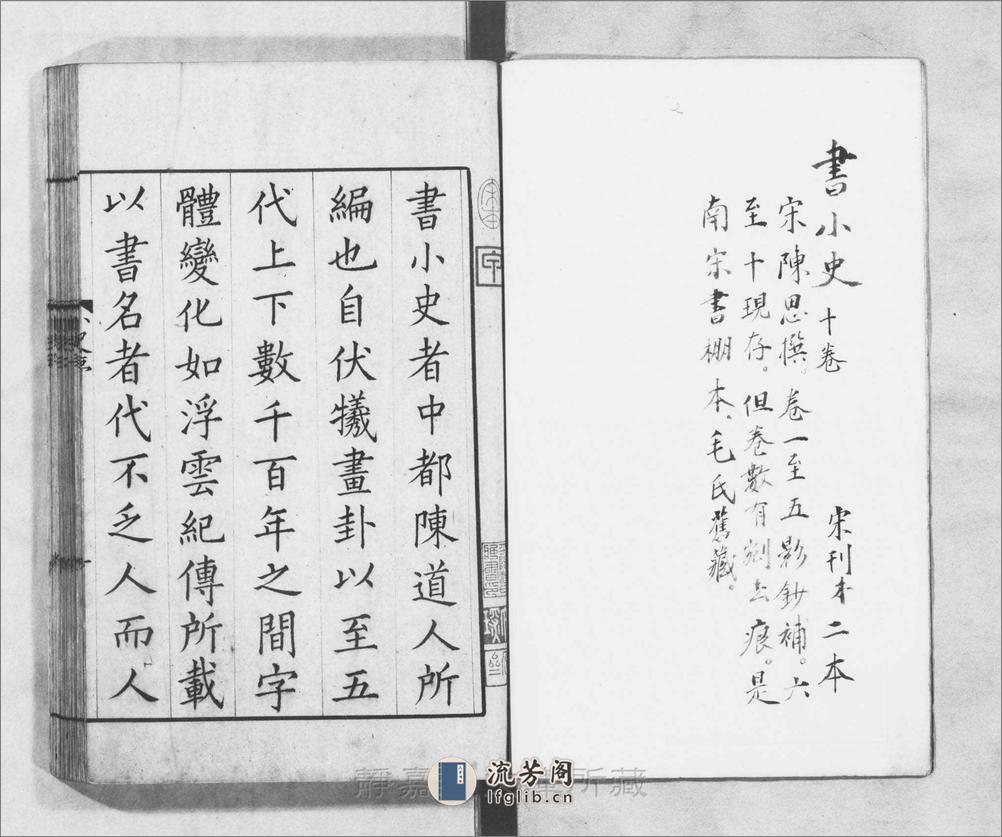 書小史十卷 宋刊本二本
宋陳思撰。卷一至五影鈔補。六
至十現存。但卷數有剜去痕。是
南宋書棚本、毛氏舊藏。
書小史者中都陳道人所
編也自伏犧畫卦以至五
代上下數千百年之間字
體變化如浮雲紀傳所載
以書名者代不乏人而人
靜嘉 所藏
流芳阁
lfglib.cn